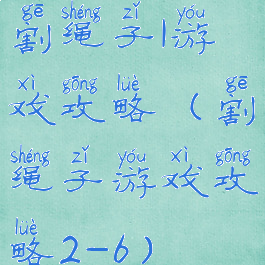 gē shéng zǐ yóu
割绳子|游
xì gōng lüè gē
戏攻略(割
shéng zǐ yóu xì gōng
绳子游戏攻
lüè
略2-6)